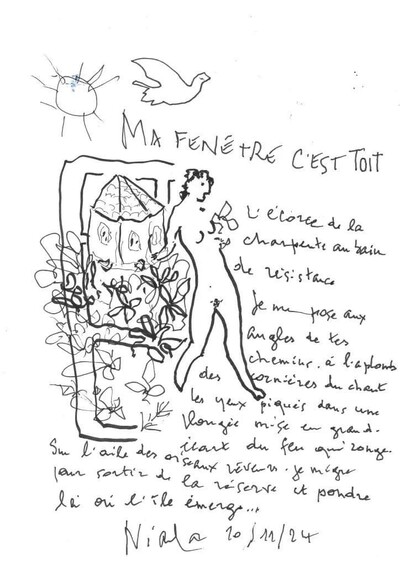 MA FENÊTRE C'EST TOIT
L'écorce de la
charpente au bain
de résistance
Je me pose aux
angles de tes
chemins à l'aplomb
des cornières du chant
les yeux piqués dans une
plongée mise en grand-
écart du feu qui ronge.
Sur l'aile des oiseaux rêveurs je migre
pour sortir de la réserve et pondre
là où l'île émerge...
Niala 20/11/24